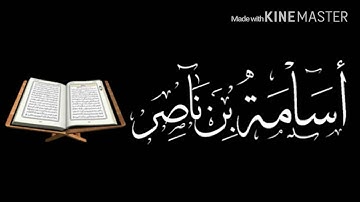 Made with KINEMASTER
أسامة بن ناصر